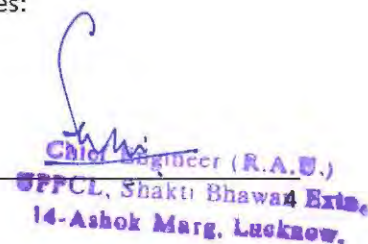 es:
Chief Engineer (R.A.U.)
UPPCL, Shakti Bhawan Extn.
4
14-Ashok Marg, Lucknow.